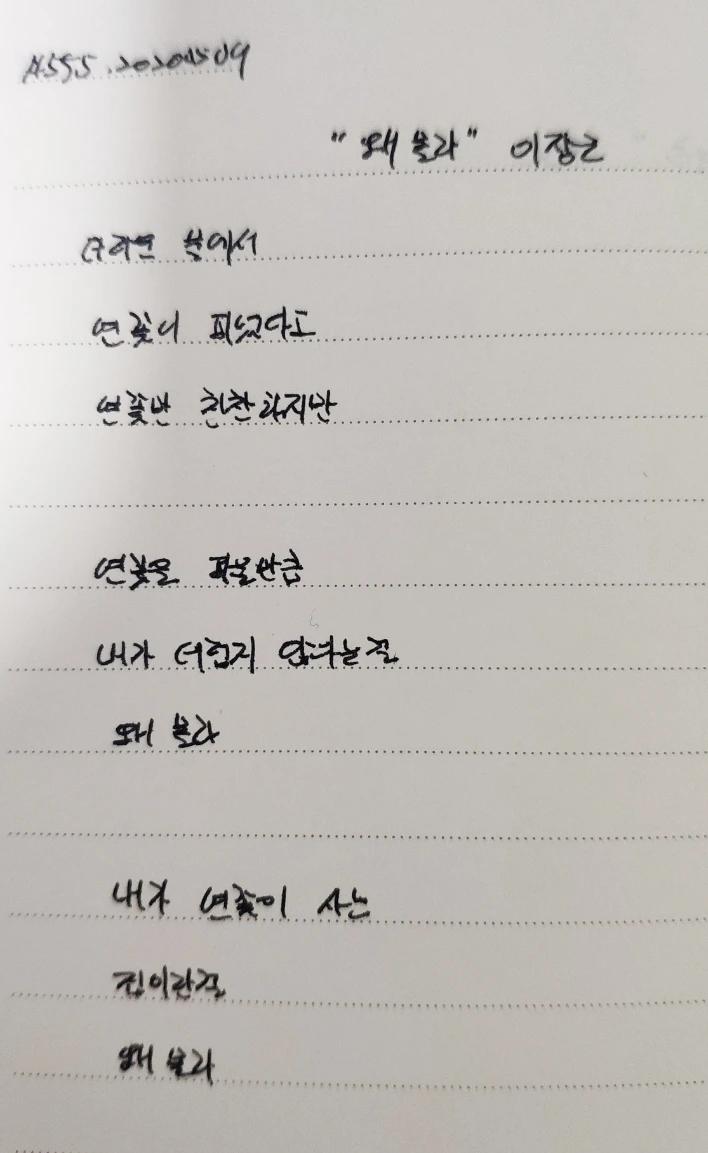 "왜 몰라" 이장근
더러운 물에서
연꽃이 피었다고
연꽃만 칭찬하지만
연꽃을 피울만큼
내가 더럽지 않다는걸
왜 몰라
내가 연꽃이 사는
집이란걸
왜 몰라